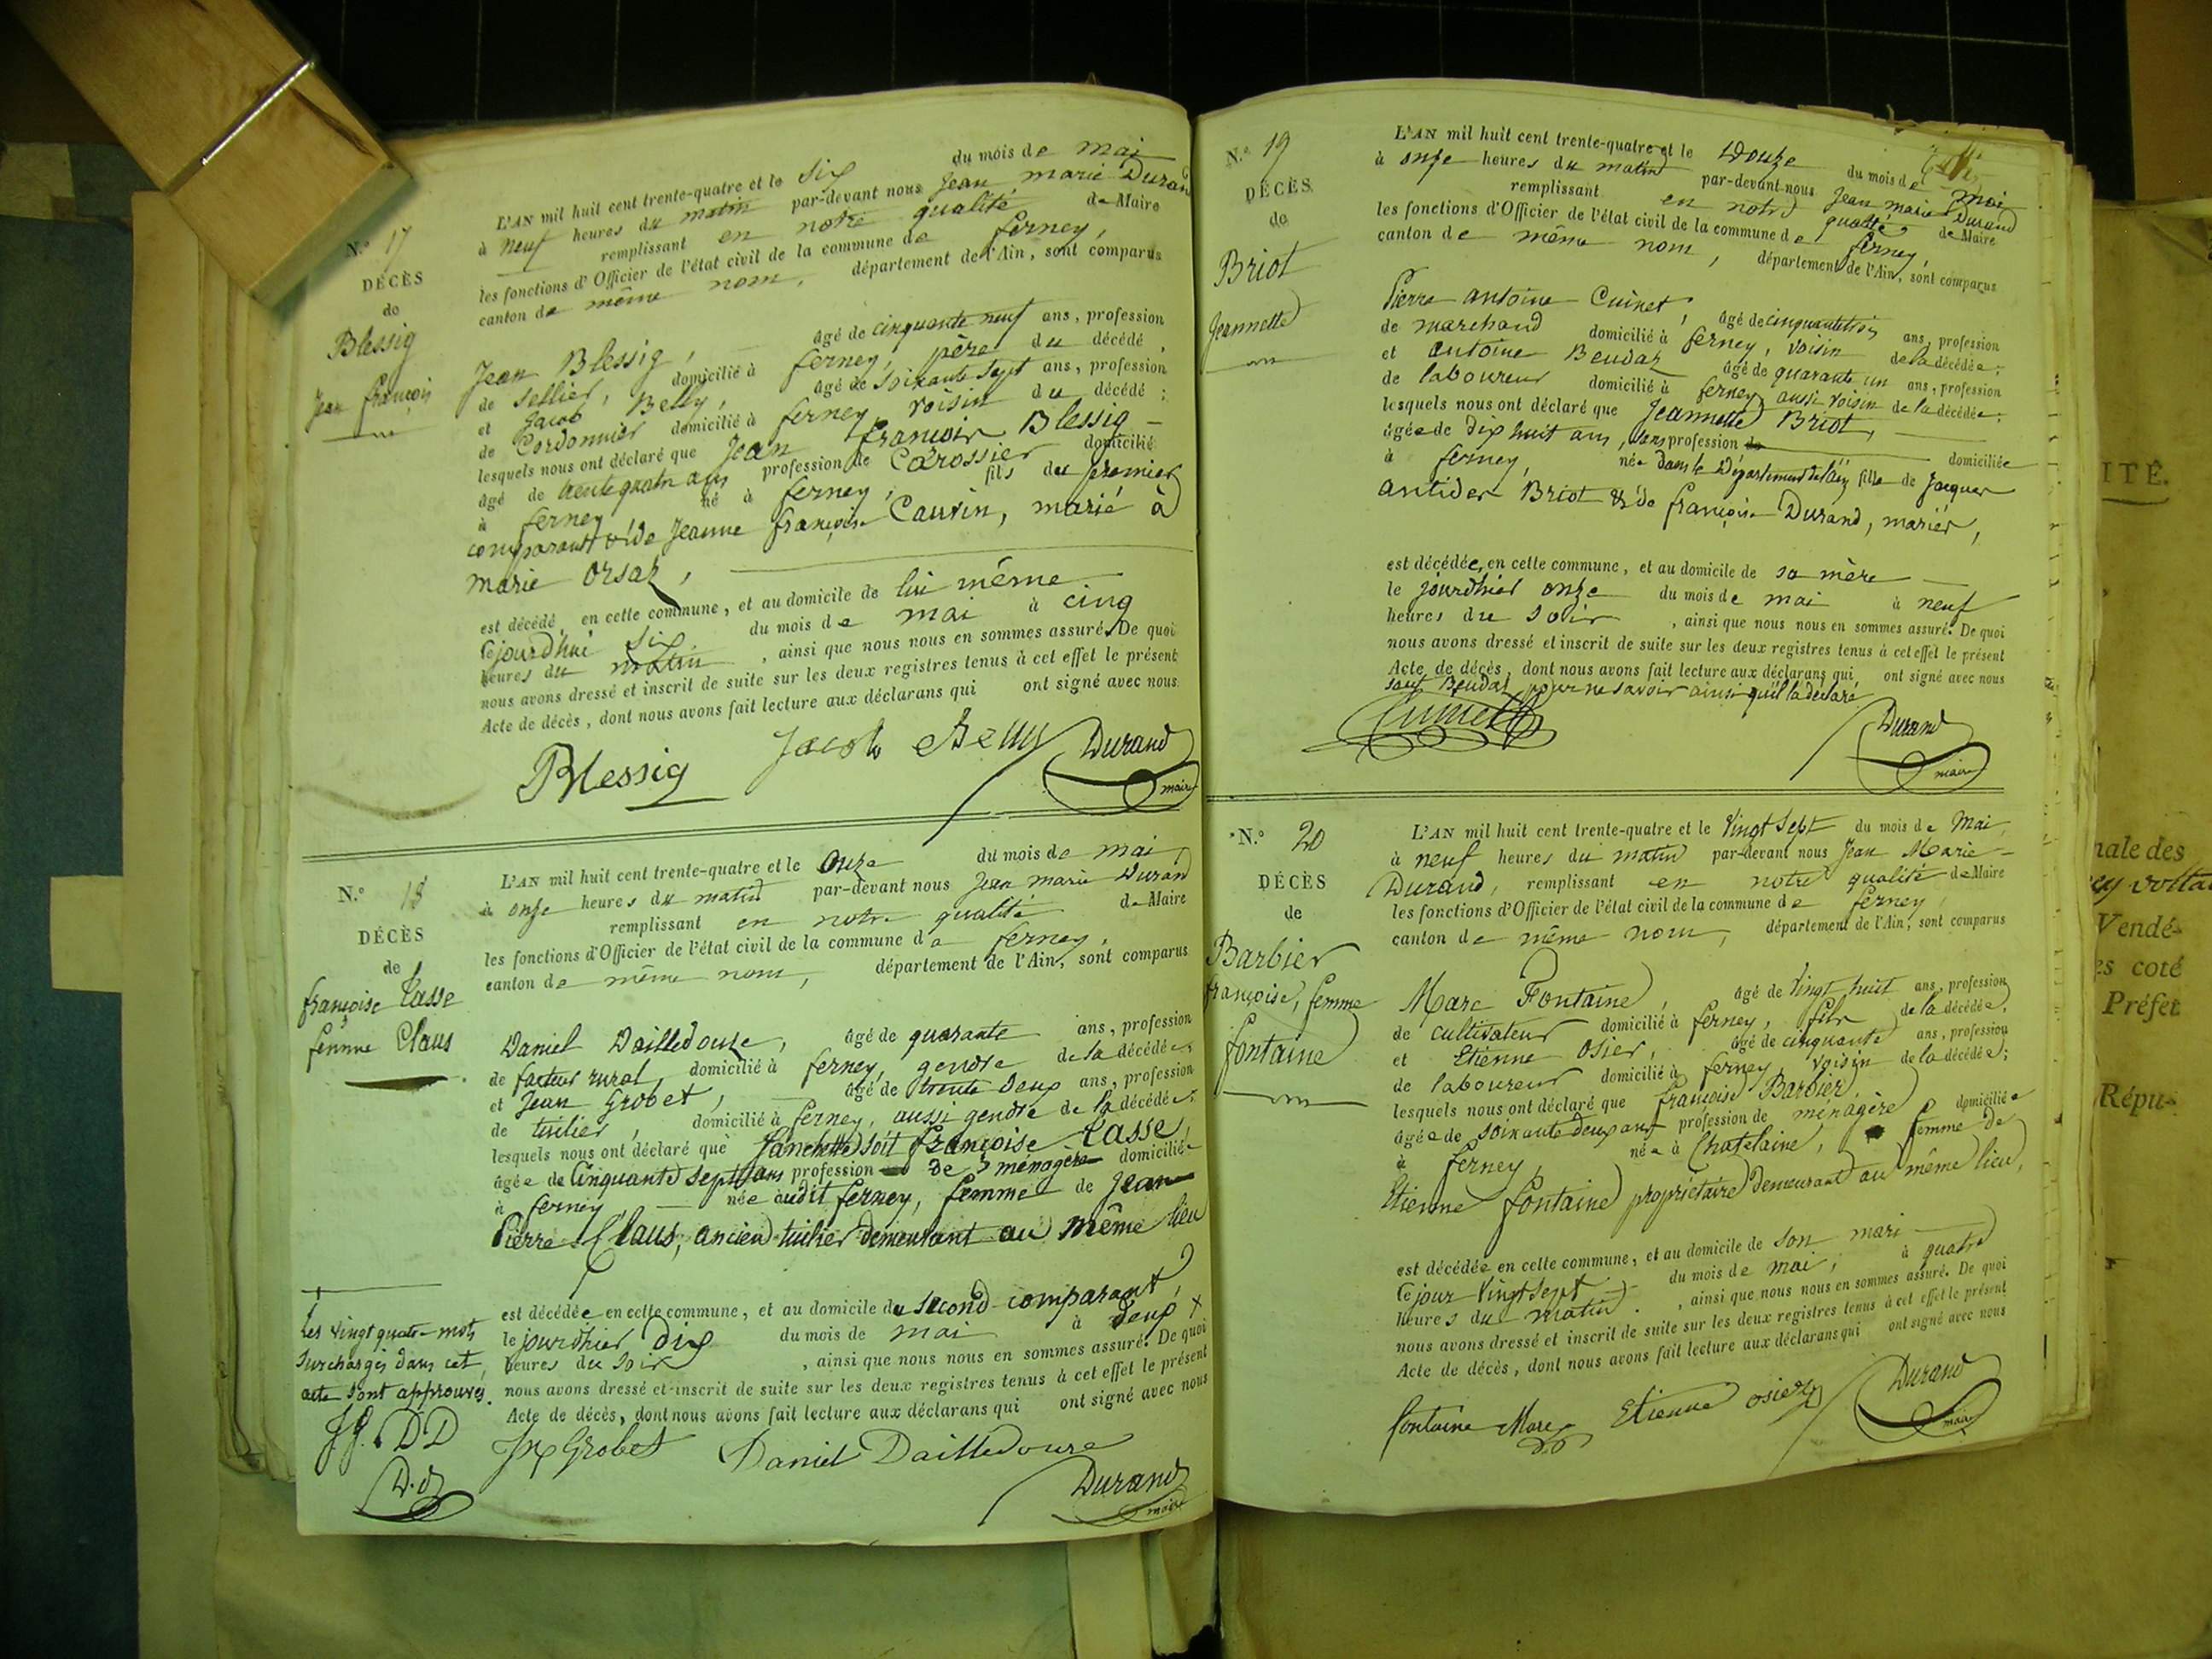 N.º 17
DÉCÈS
de
Blessig
Jean françois
L'AN mil huit cent trente-quatre et le six du mois de mai
à neuf heures du matin par-devant nous Jean marie Durand
remplissant en notre qualité de Maire
les fonctions d'Officier de l'état civil de la commune de ferney,
canton de même nom, département de l'Ain, sont comparus
Jean Blessig, âgé de cinquante neuf ans, profession
de sellier, domicilié à ferney, père du décédé,
et Jacob Belly, âgé de soixante sept ans, profession
de Cordonnier domicilié à ferney, voisin du décédé;
lesquels nous ont déclaré que Jean françois Blessig
âgé de trente quatre ans profession de Carossier domicilié
à ferney, né à ferney, fils du premier
comparant & de Jeanne françoise Cauvin, marié à
marie Orsaz,
est décédé en cette commune, et au domicile de lui même
cejourdhui six du mois de mai à cinq
heures du matin, ainsi que nous nous en sommes assuré. De quoi
nous avons dressé et inscrit de suite sur les deux registres tenus à cet effet le présent
Acte de décès, dont nous avons fait lecture aux déclarans qui ont signé avec nous
Blessig Jacob Belly Durand
maire
N.º 18
DÉCÈS
de
françoise Tasse
femme Claus
L'AN mil huit cent trente-quatre et le onze du mois de mai,
à onze heures du matin par-devant nous Jean marie Durand
remplissant en notre qualité de Maire
les fonctions d'Officier de l'état civil de la commune de ferney,
canton de même nom, département de l'Ain, sont comparus
Daniel Dailledouze, âgé de quarante ans, profession
de facteur rural, domicilié à ferney, gendre de la décédée,
et Jean Grobet, âgé de trente deux ans, profession
de tuilier, domicilié à ferney, aussi gendre de la décédée;
lesquels nous ont déclaré que fanchette soit françoise Tasse,
âgée de Cinquante sept ans profession de ménagère domiciliée
à ferney née audit ferney, femme de Jean
Pierre Claus, ancien tuilier demeurant au même lieu
est décédée en cette commune, et au domicile du second comparant,
le jourdhier dix du mois de mai à deux +
heures du soir, ainsi que nous nous en sommes assuré. De quoi
nous avons dressé et inscrit de suite sur les deux registres tenus à cet effet le présent
Acte de décès, dont nous avons fait lecture aux déclarans qui ont signé avec nous
+
Les vingt quatre mots
surchargés dans cet
acte sont approuvés.
J.G. DD
D.d
Jn Grobet Daniel Dailledouze
Durand
maire
N.º 19
DÉCÈS
de
Briot
Jeannette
L'AN mil huit cent trente-quatre et le Douze du mois de mai
à onze heures du matin par-devant nous Jean marie Durand
remplissant en notre qualité de Maire
les fonctions d'Officier de l'état civil de la commune de ferney,
canton de même nom, département de l'Ain, sont comparus
Pierre antoine Cuinet, âgé de cinquante trois ans, profession
de marchand domicilié à ferney, voisin de la décédée;
et antoine Beudaz âgé de quarante un ans, profession
de laboureur domicilié à ferney, aussi voisin de la décédée;
lesquels nous ont déclaré que Jeannette Briot,
âgée de dix huit ans, sans profession domiciliée
à ferney, née dans le Département de l'ain fille de Jacques
antider Briot & de françoise Durand, mariés,
est décédée, en cette commune, et au domicile de sa mère
le jourdhier onze du mois de mai à neuf
heures du soir, ainsi que nous nous en sommes assuré. De quoi
nous avons dressé et inscrit de suite sur les deux registres tenus à cet effet le présent
Acte de décès, dont nous avons fait lecture aux déclarans qui ont signé avec nous
sauf Beudaz pour ne savoir ainsi qu'il l'a déclaré
Cuinet Durand
maire
N.º 20
DÉCÈS
de
Barbier
françoise, femme
fontaine
L'AN mil huit cent trente-quatre et le Vingt sept du mois de Mai
à neuf heures du matin par-devant nous Jean Marie
Durand, remplissant en notre qualité de Maire
les fonctions d'Officier de l'état civil de la commune de ferney,
canton de même nom, département de l'Ain, sont comparus
Marc Fontaine, âgé de Vingt huit ans, profession
de cultivateur domicilié à ferney, fils de la décédée,
et Etienne Osier, âgé de cinquante ans, profession
de laboureur domicilié à ferney voisin de la décédée;
lesquels nous ont déclaré que françoise Barbier
âgée de soixante deux ans profession de ménagère domiciliée
à ferney, née à Chatelaine, femme de
Etienne fontaine propriétaire demeurant au même lieu,
est décédée en cette commune, et au domicile de son mari
cejour vingt sept du mois de mai, à quatre
heures du matin, ainsi que nous nous en sommes assuré. De quoi
nous avons dressé et inscrit de suite sur les deux registres tenus à cet effet le présent
Acte de décès, dont nous avons fait lecture aux déclarans qui ont signé avec nous
fontaine Marc Etienne osier Durand
maire
ITÉ.
nale des
ey voltai
Vendé-
es coté
Préfet
Répu-